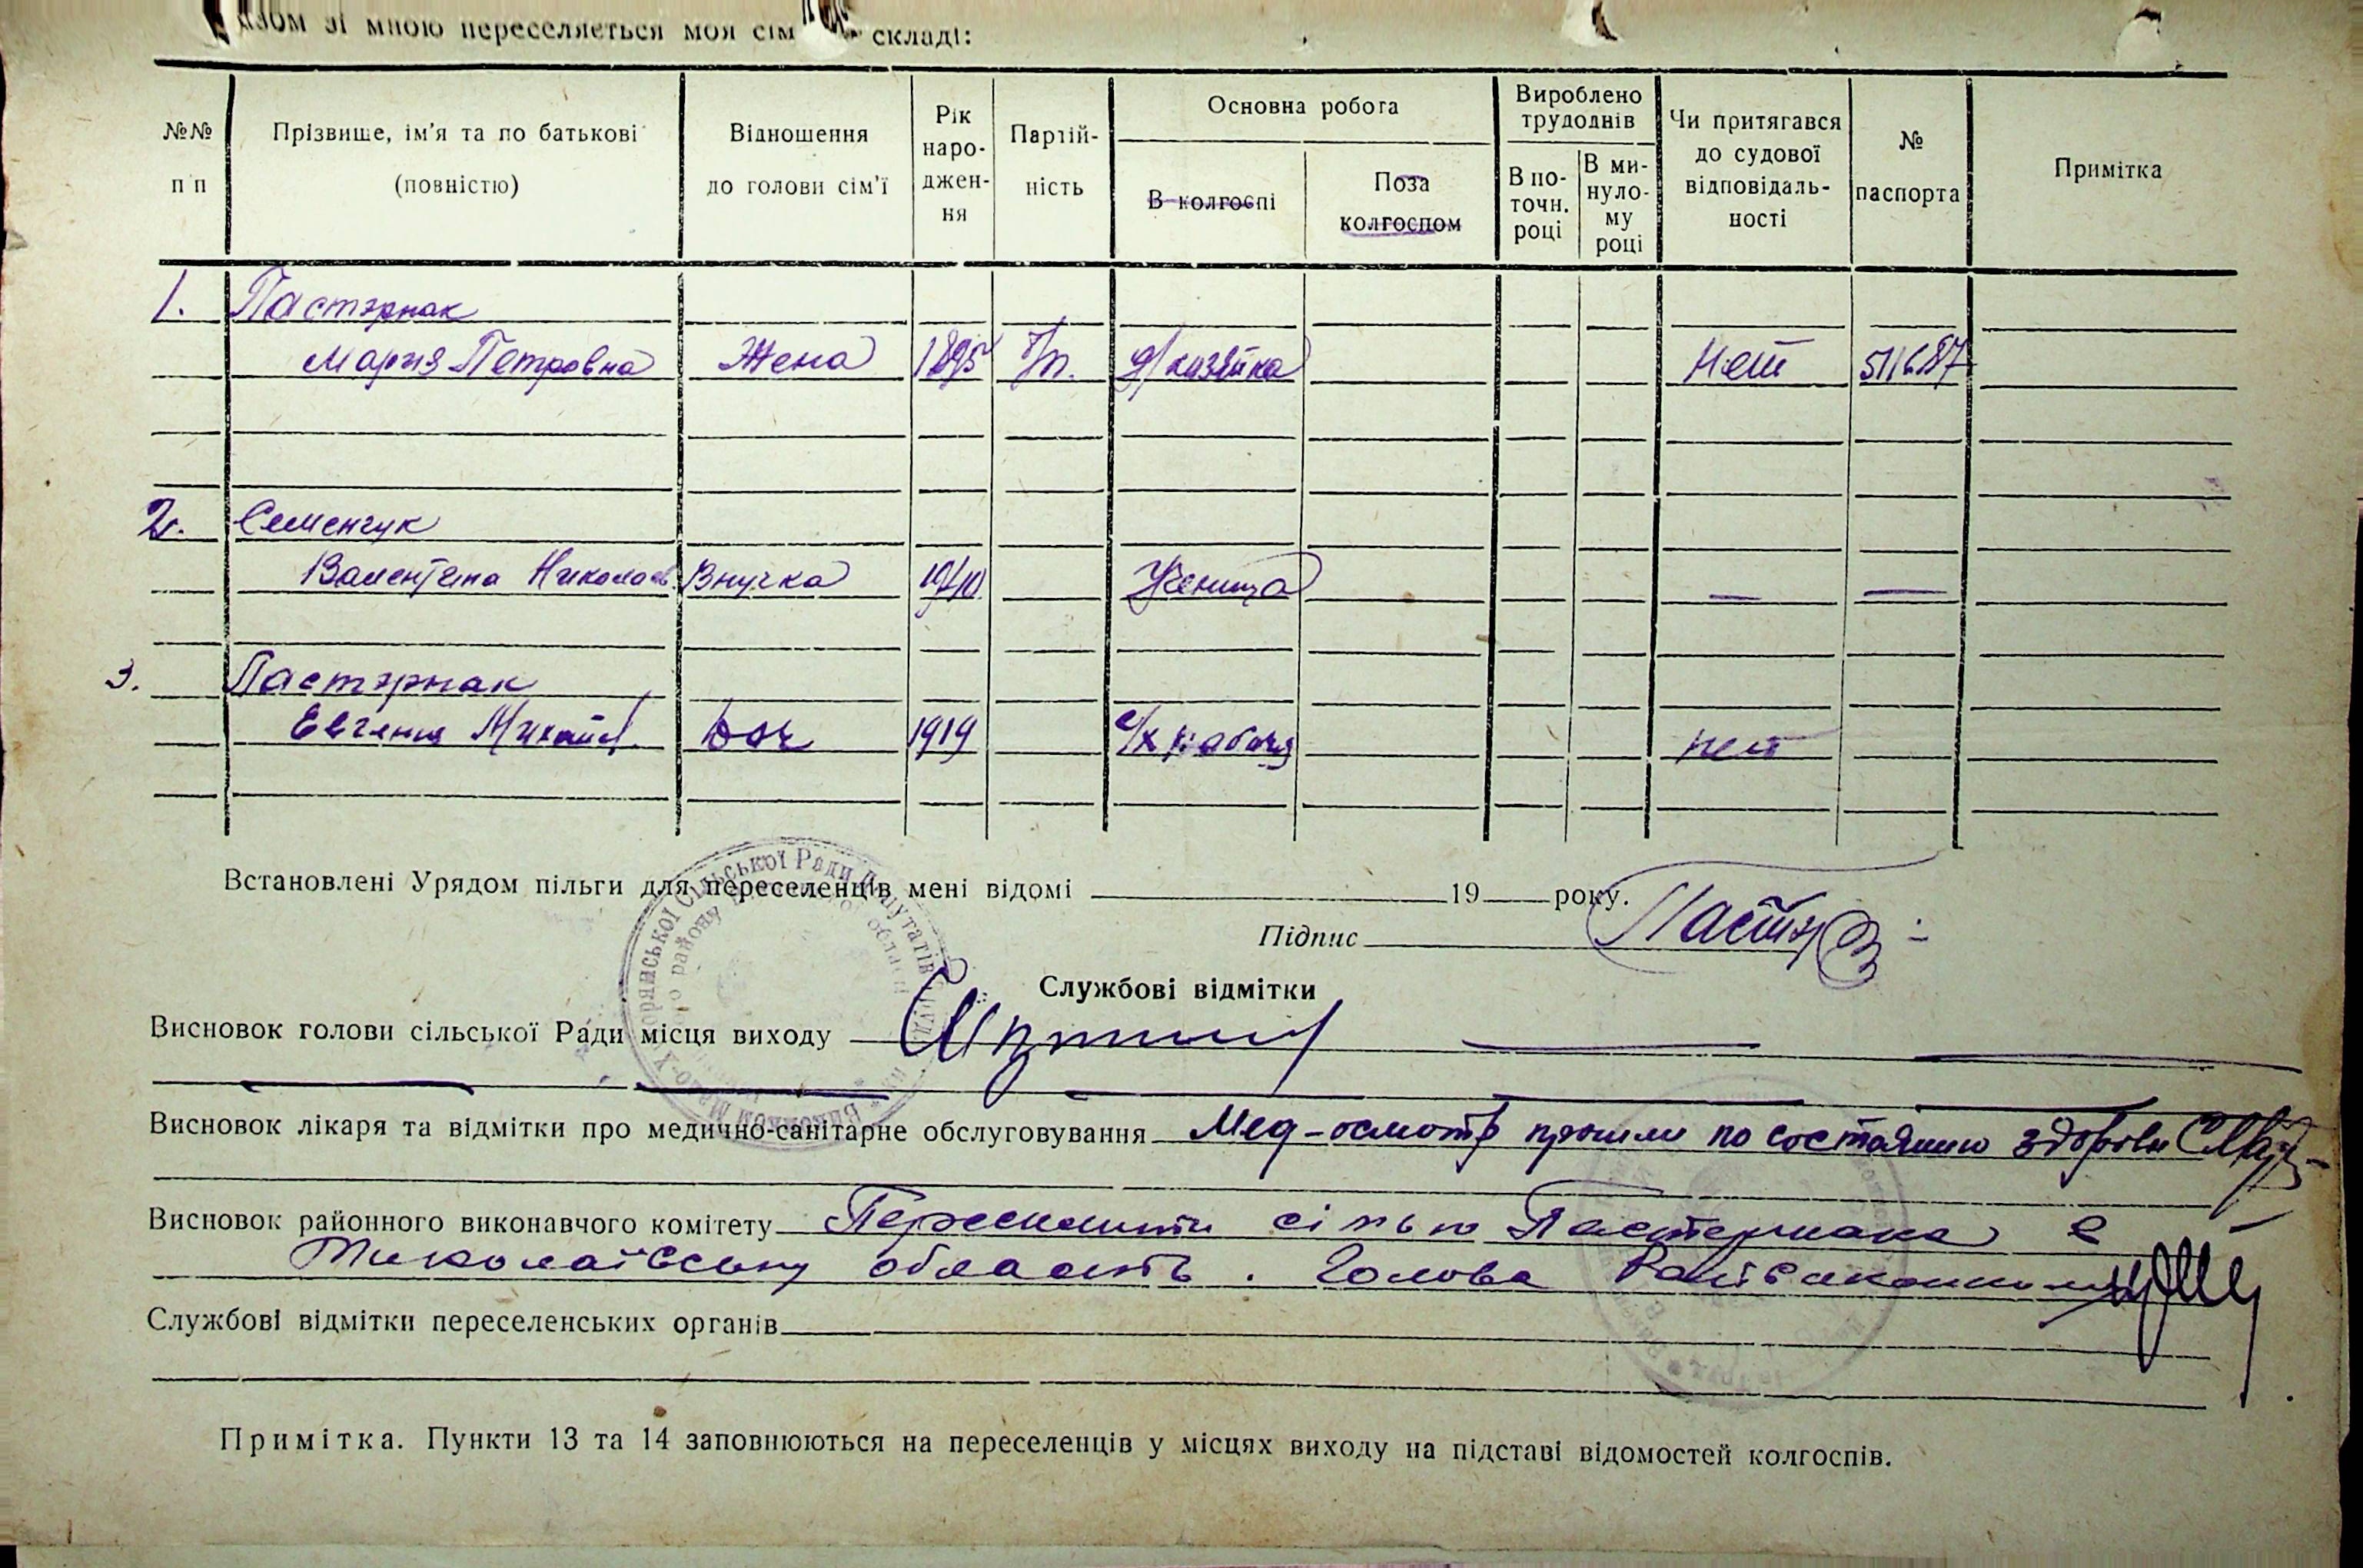 азом зі мною переселяється моя сім складі:
№№ п п
Прізвище, ім'я та по батькові (повністю)
Відношення до голови сім'ї
Рік народжен-ня
Партій-ність
Основна робота
В колгоспі
Поза колгоспом
Вироблено трудоднів
В по-точн. році
В ми-нуло-му році
Чи притягався до судової відповідаль-ності
№ паспорта
Примітка
1. Пастэрнак
Мария Петровна Жена 1895 б/п. д/хазяйка Нет 511687
2. Семенчук
Валентина Николаев. Внучка 1940 Ученица — —
3. Пастэрнак
Евгения Михайл. Доч 1919 с/х рабочая нет
Встановлені Урядом пільги для переселенців мені відомі 19 року.
Підпис Пастэр
Службові відмітки
Висновок голови сільської Ради місця виходу
Висновок лікаря та відмітки про медично-санітарне обслуговування Мед-осмотр прошли по состоянию здоровья
Висновок районного виконавчого комітету Переселити сім'ю Пастернака в
Миколаївську область. Голова Райвиконкому
Службові відмітки переселенських органів
Примітка. Пункти 13 та 14 заповнюються на переселенців у місцях виходу на підставі відомостей колгоспів.